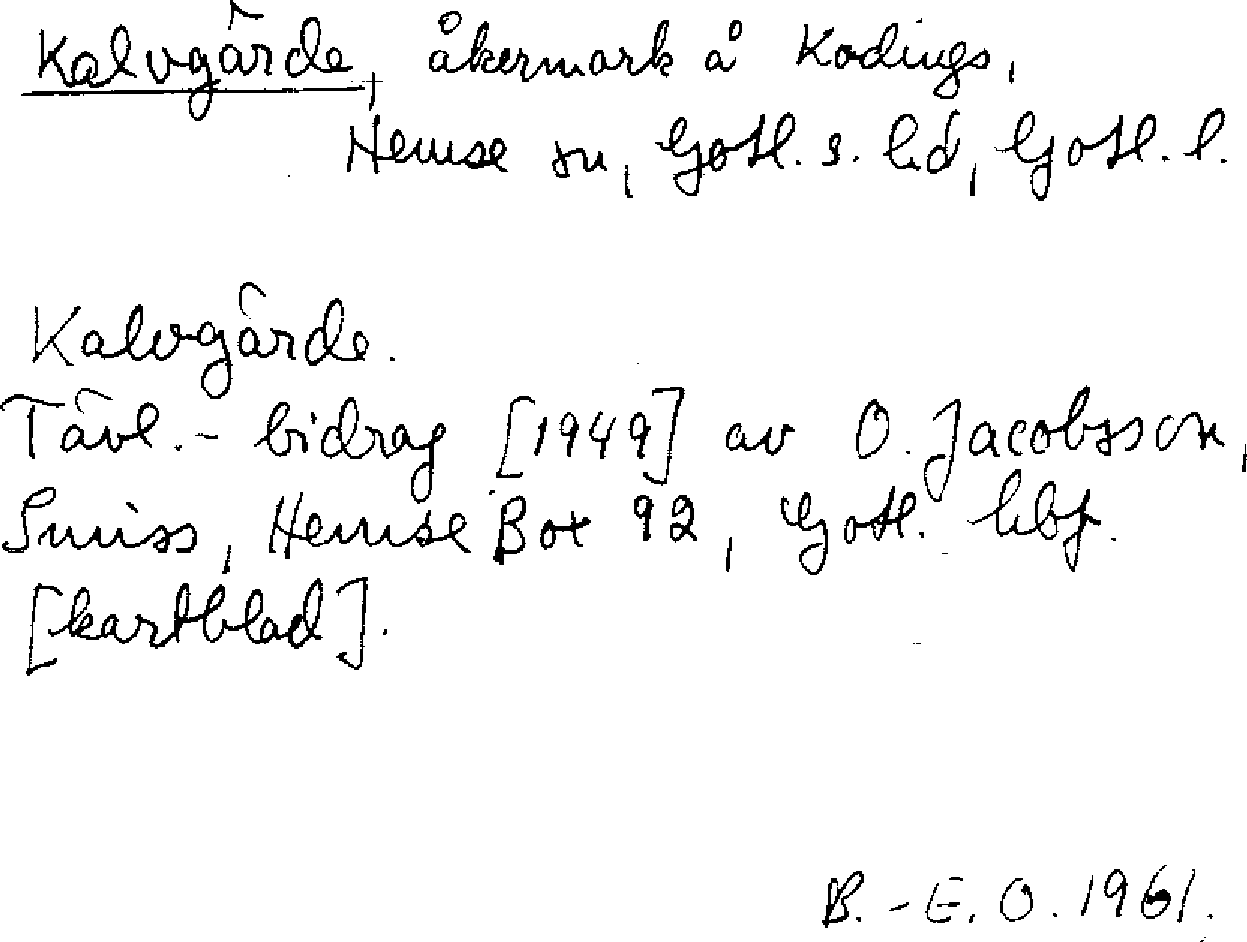 Kalvgärde, åkermark å Kodings,
Hemse sn, Gotl. s. hd, Gotl. l.
Kalvgärde.
Tävl.-bidrag [1949] av O. Jacobsson,
Smiss, Hemse Box 92, Gotl. hbf.
[kartblad].
B.-E. O. 1961.